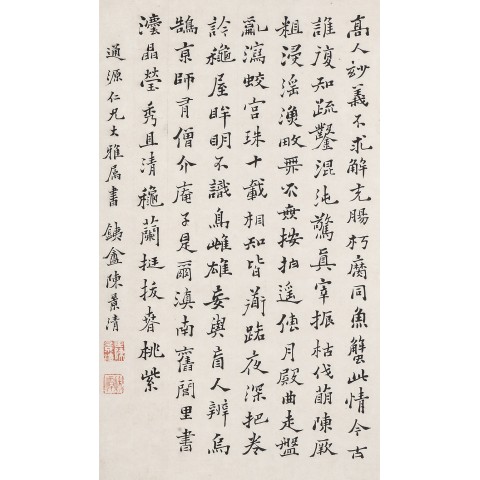 高人妙義不求解充腸朽腐同魚蟹此情今古
誰復知疏鑿混沌驚真宰振枯伐萌陳厥
粗浸淫漁畋無不無按抽遥儘月殿曲走盤
亂瀉蛟宮珠十載相知皆薄踏夜深把卷
許龝屋眸明不識鳥雌雄妄與盲人辨烏
鵠京師有僧介庵子是爾滇南舊閭里書
瀅晶瑩秀且清龝蘭挺拔春桃紫
通源仁兄大雅屬書 陳景清